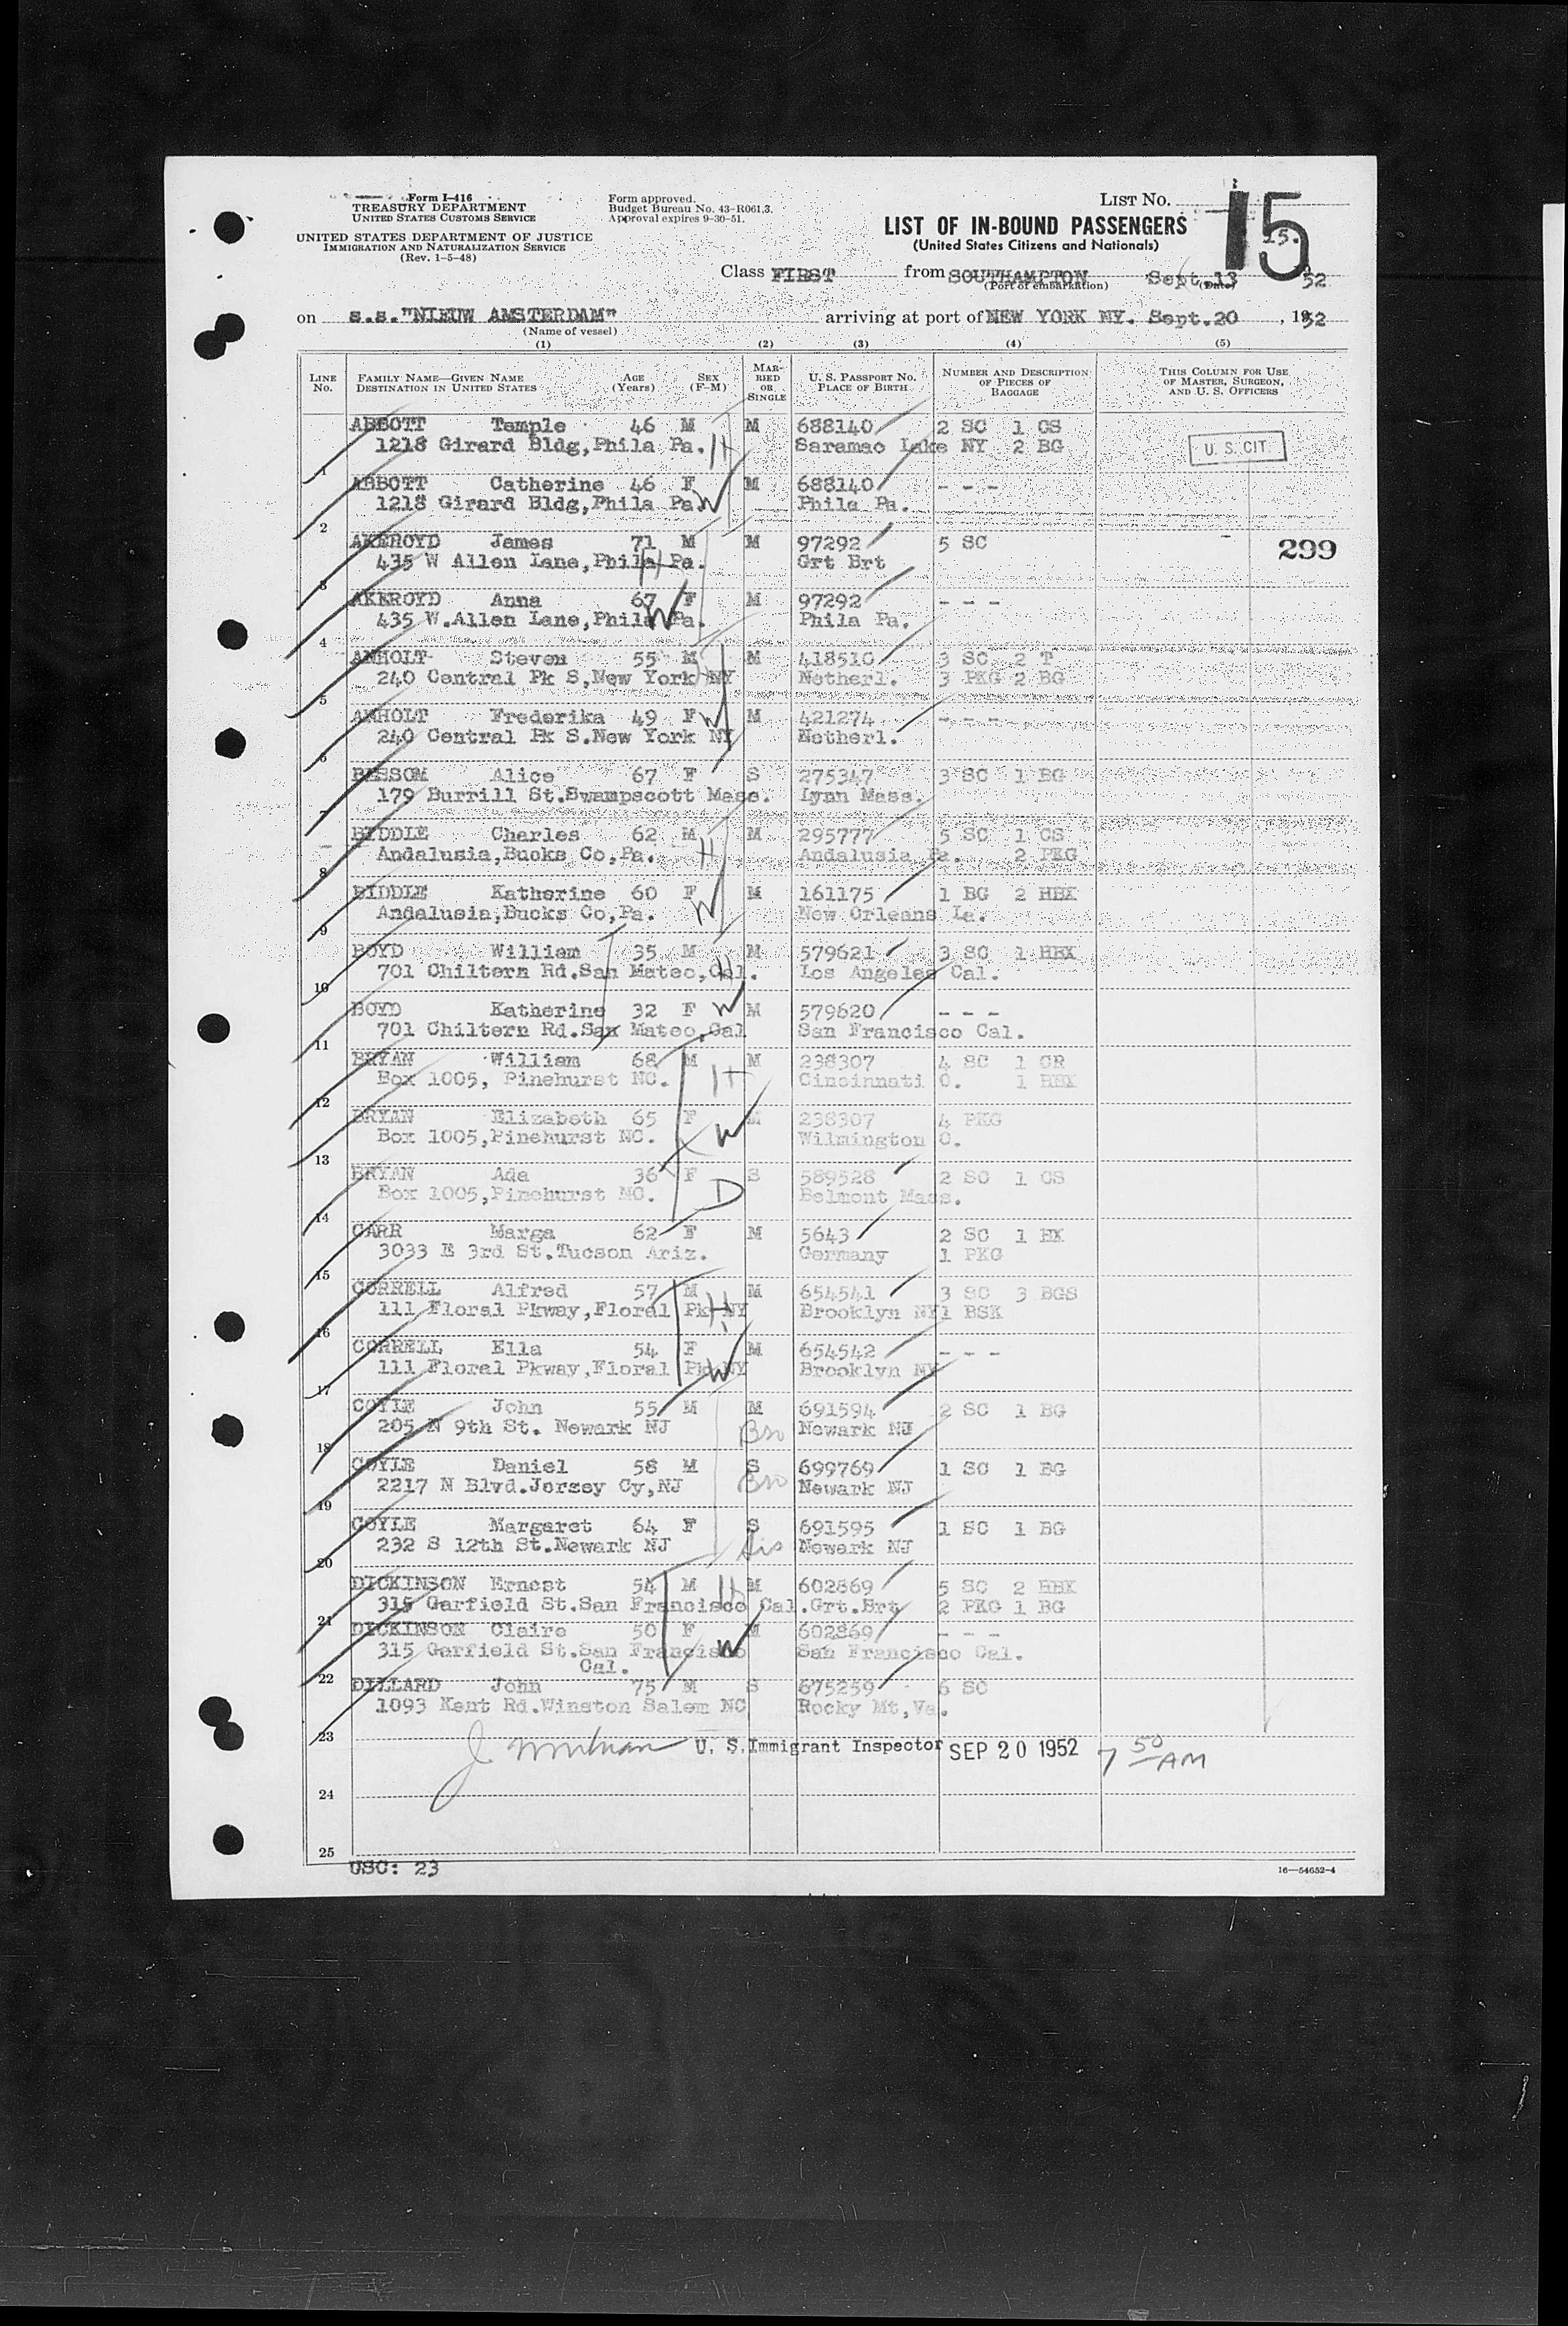 Form I-416
TREASURY DEPARTMENT
UNITED STATES CUSTOMS SERVICE
UNITED STATES DEPARTMENT OF JUSTICE
IMMIGRATION AND NATURALIZATION SERVICE
(Rev. 1-5-48)
Form approved.
Budget Bureau No. 43-R061.3.
Approval expires 9-30-51.
LIST No. 15.
15
LIST OF IN-BOUND PASSENGERS
(United States Citizens and Nationals)
Class FIRST from SOUTHAMPTON Sept. 13 52
(Port of embarkation) (Date)
on s.s."NIEUW AMSTERDAM" arriving at port of NEW YORK NY. Sept.20, 1952
(Name of vessel)
(1) (2) (3) (4) (5)
LINE No. FAMILY NAME—GIVEN NAME DESTINATION IN UNITED STATES AGE (Years) SEX (F-M) MARRIED OR SINGLE U. S. PASSPORT NO. PLACE OF BIRTH NUMBER AND DESCRIPTION OF PIECES OF BAGGAGE THIS COLUMN FOR USE OF MASTER, SURGEON, AND U. S. OFFICERS
ABBOTT Temple 46 M M 688140 2 SC 1 CS
1218 Girard Bldg,Phila Pa. H Saramac Lake NY 2 BG U. S. CIT.
1
ABBOTT Catherine 46 F M 688140 - - -
1218 Girard Bldg,Phila Pa. W Phila Pa.
2
AKEROYD James 71 M M 97292 5 SC 299
435 W Allen Lane,Phila Pa. H Grt Brt
3
AKEROYD Anna 67 F M 97292 - - -
435 W.Allen Lane,Phila Pa. W Phila Pa.
4
ANHOLT Steven 55 M M 418510 3 SC 2 T
240 Central Pk S,New York NY H Netherl. 3 PKG 2 BG
5
ANHOLT Frederika 49 F W M 421274 - - -
240 Central Pk S.New York NY Netherl.
6
BESSOM Alice 67 F S 275347 3 SC 1 BG
179 Burrill St.Swampscott Mass. Lynn Mass.
7
BIDDLE Charles 62 M M 295777 5 SC 1 CS
Andalusia,Bucks Co,Pa. H Andalusia Pa. 2 PKG
8
BIDDLE Katherine 60 F M 161175 1 BG 2 HBX
Andalusia,Bucks Co,Pa. W New Orleans La.
9
BOYD William 35 M M 579621 3 SC 1 HBX
701 Chiltern Rd.San Mateo,Cal. H Los Angeles Cal.
10
BOYD Katherine 32 F W M 579620 - - -
701 Chiltern Rd.San Mateo,Cal San Francisco Cal.
11
BRYAN William 68 M M 238307 4 SC 1 CR
Box 1005, Pinehurst NC. H Cincinnati O. 1 HBX
12
BRYAN Elizabeth 65 F M 238307 4 PKG
Box 1005,Pinehurst NC. W Wilmington O.
13
BRYAN Ada 36 F S 589528 2 SC 1 CS
Box 1005,Pinehurst NC. D Belmont Mass.
14
CARR Marga 62 F M 5643 2 SC 1 HX
3033 E 3rd St.Tucson Ariz. Germany 1 PKG
15
CORRELL Alfred 57 M M 654541 3 SC 3 BGS
111 Floral Pkway,Floral Pk NY H Brooklyn NY 1 BSK
16
CORRELL Ella 54 F M 654542 - - -
111 Floral Pkway,Floral Pk NY W Brooklyn NY
17
COYLE John 55 M M 691594 2 SC 1 BG
205 N 9th St. Newark NJ Bro Newark NJ
18
COYLE Daniel 58 M S 699769 1 SC 1 BG
2217 N Blvd.Jersey Cy,NJ Bro Newark NJ
19
COYLE Margaret 64 F S 691595 1 SC 1 BG
232 S 12th St.Newark NJ Sis Newark NJ
20
DICKINSON Ernest 54 M H M 602869 5 SC 2 HBX
315 Garfield St.San Francisco Cal.Grt.Brt 2 PKG 1 BG
21
DICKINSON Claire 50 F M 602869 - - -
315 Garfield St.San Francisco W San Francisco Cal.
Cal.
22
DILLARD John 75 M S 675259 6 SC
1093 Kent Rd.Winston Salem NC Rocky Mt,Va.
23
U. S. Immigrant Inspector SEP 20 1952 7 50 AM
24
25
USC: 23
16—54652-4